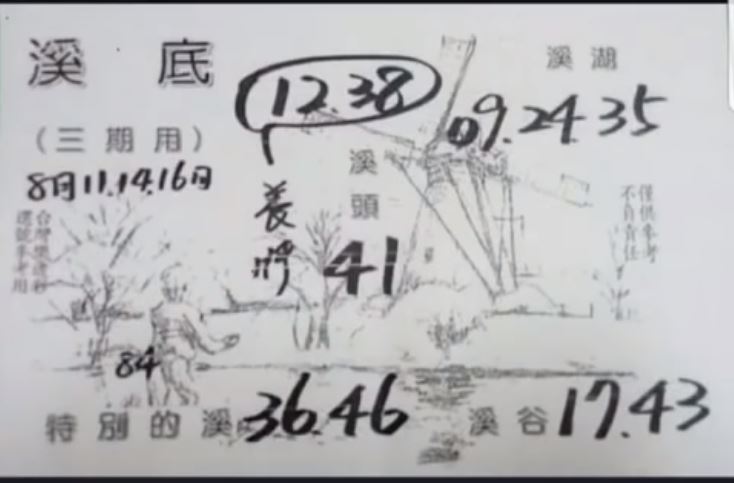 溪底
12.38
溪湖
09.24.35
(三期用)
8日11.14.16日
溪頭
41
養牌
僅供參考
不自責任
台灣樂透彩
選號參考用
84
特別的溪 36.46
溪谷 17.43